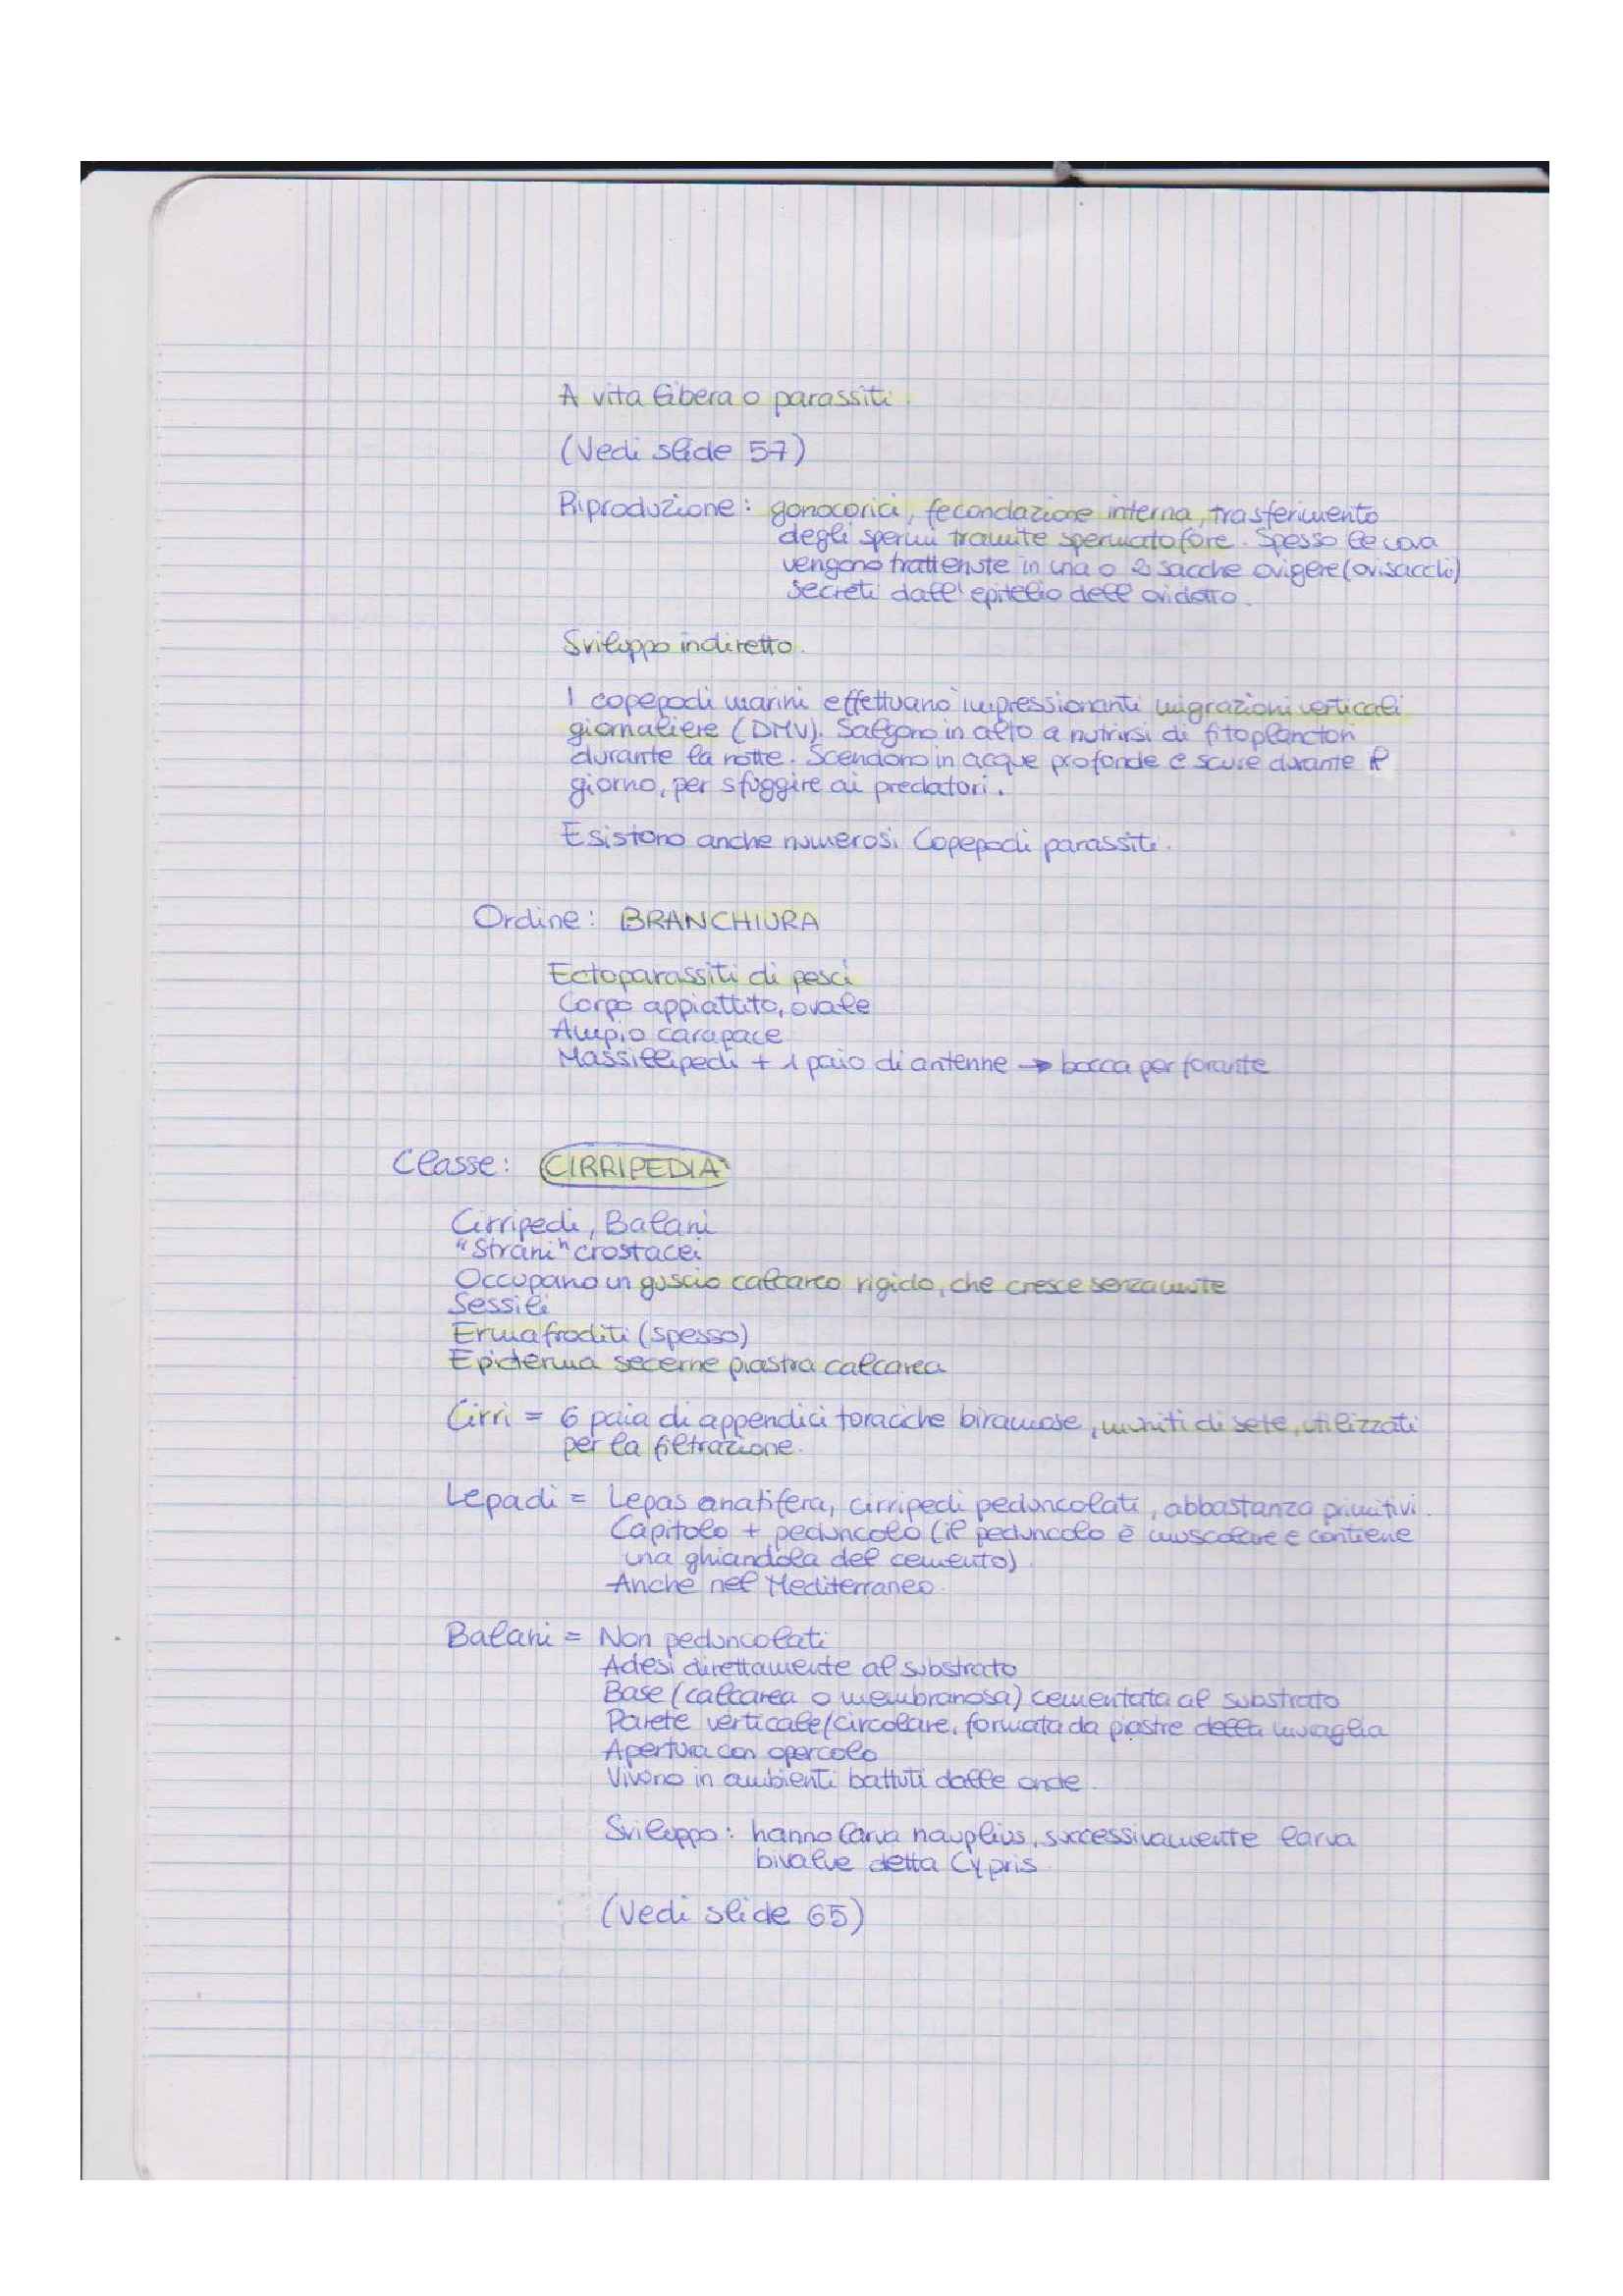 A vita libera o parassiti.
(Vedi slide 57)
Riproduzione: gonocorici, fecondazione interna, trasferimento
degli spermi tramite spermatofore. Spesso le uova
vengono trattenute in una o 2 sacche ovigere (ovisacchi)
secreti dall'epitelio dell ovidotto.
Sviluppo indiretto.
I copepodi marini effettuano impressionanti migrazioni verticali
giornaliere (DMV). Salgono in alto a nutrirsi di fitoplancton
durante la notte. Scendono in acque profonde e scure durante il
giorno, per sfuggire ai predatori.
Esistono anche numerosi Copepodi parassiti.
Ordine: BRANCHIURA
Ectoparassiti di pesci
Corpo appiattito, ovale
Ampio carapace
Massillipedi + 1 paio di antenne → bocca perforante
Classe: CIRRIPEDIA
Cirripedi, Balani
"Strani" crostacei
Occupano un guscio calcareo rigido, che cresce senza mute
Sessili
Ermafroditi (spesso)
Epiderma secerne piastra calcarea
Cirri = 6 paia di appendici toraciche biramose, muniti di sete, utilizzati
per la filtrazione.
Lepadi = Lepas anatifera, cirripedi peduncolati, abbastanza primitivi.
Capitolo + peduncolo (il peduncolo è muscolare e contiene
una ghiandola del cemento)
Anche nel Mediterraneo.
Balani = Non peduncolati
Adesi direttamente al substrato
Base (calcarea o membranosa) cementata al substrato
Parete verticale/circolare, formata da piastre della muraglia
Apertura con opercolo
Vivono in ambienti battuti dalle onde.
Sviluppo: hanno larva nauplius, successivamente larva
bivalve detta Cypris.
(Vedi slide 65)